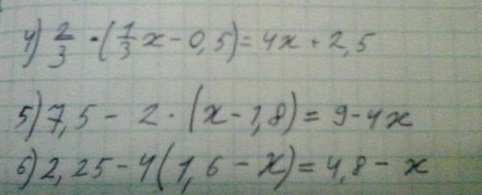 4) 2/3 · (1/3 x - 0,5) = 4x + 2,5
5) 7,5 - 2 · (x - 1,8) = 9 - 4x
6) 2,25 - 4(1,6 - x) = 4,8 - x